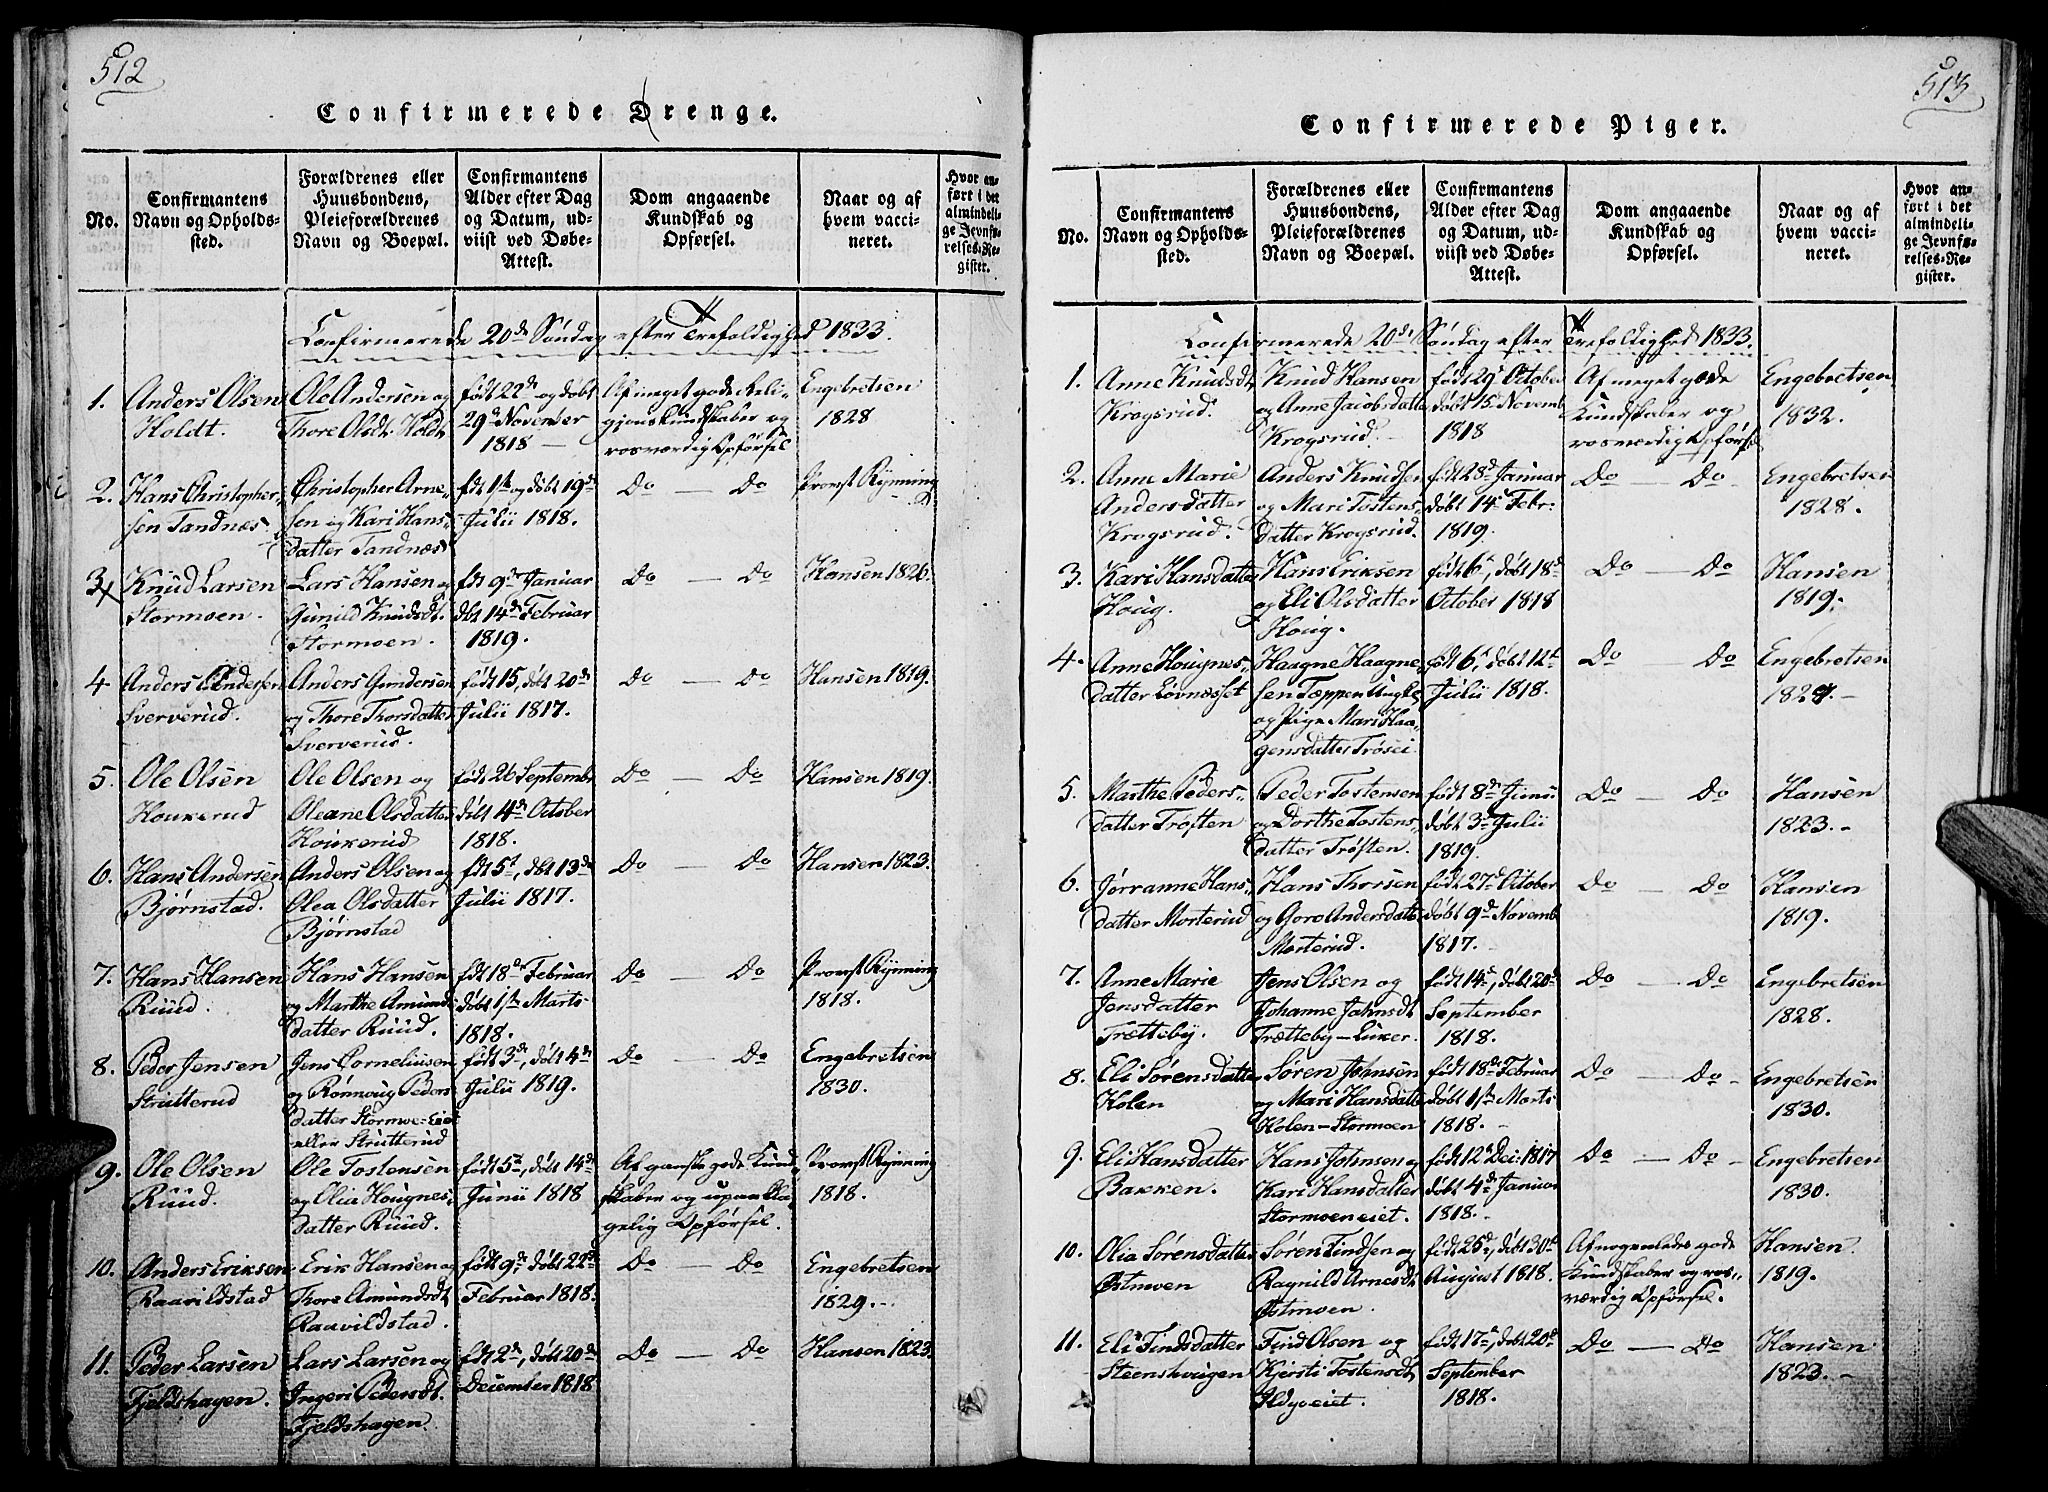 512
Confirmerede Drenge.
No.
Confirmantens Navn og Opholds-sted.
Forældrenes eller Huusbondens, Pleieforældrenes Navn og Boepæl.
Confirmantens Alder efter Dag og Datum, ud-viist ved Døbe-Attest.
Dom angaaende Kundskab og Opførsel.
Naar og af hvem vacci-neret.
Hvor an-ført i det almindeli-ge Jevnfø-relses-Re-gister.
Confirmerede 20de Søndag efter Trefoldighed 1833.
1. Anders Olsen Holdt.
Ole Andersen og Thore Olsdr Holdt
født 22de og døbt 29de November 1818 —
Af meget gode Reli-gionskundskaber og rosværdig Opførsel
Engebretsen 1828
2. Hans Christopher-sen Tandnæs
Christopher Arne-sen og Kari Hans-datter Tandnæs
fdt 1ste og døbt 19de Julii 1818.
Do — Do
Provst Rynning
3. Knud Larsen Stormoen.
Lars Hansen og Gunild Knudsdt. Stormoen
fdt 9de Januar dbt 14de Februar 1819.
Do — Do
Hansen 1826.
4 Anders Andersen Sververud.
Anders Gundersen og Thore Thorsdatter Sververud.
født 15, døbt 20de Julii 1817.
Do — Do
Hansen 1819.
5. Ole Olsen Houkerud
Ole Olsen og Oleane Olsdatter Houkerud
født 26 Septembr døbt 4de October 1818.
Do — Do
Hansen 1819.
6. Hans Andersen Bjørnstad.
Anders Olsen og Olea Olsdatter Bjørnstad
fdt 5te, dbt 13de Julii 1817.
Do — Do
Hansen 1823.
7. Hans Hansen Ruud.
Hans Hansen og Marthe Amunds-datter Ruud.
fdt 18de Februar døbt 1ste Marts 1818.
Do — Do
Provst Rynning 1818.
8. Peder Jensen Strutterud
Jens Corneliusen og Rønnoug Peders-datter Stormoe-Eiet eller Strutterud
født 3de, døbt 4de Julii 1819.
Do — Do
Engebretsen 1830.
9. Ole Olsen Ruud.
Ole Tostensen og Olia Hougnes-datter Ruud.
født 5te, døbt 14de Junii 1818
Af ganske gode Kund-skaber og upaakla-gelig Opførsel.
Provst Rynning 1818.
10. Anders Eriksen Raavildstad
Erik Hansen og Thore Amundsdt Raavildstad.
født 9de, døbt 22de Februar 1818.
Do — Do
Engebretsen 1829.
11. Peder Larsen Fjeldshagen.
Lars Larsen og Ingeri Pedersdt. Fjeldshagen.
fdt 2de, døbt 20de December 1818
Do — Do
Hansen 1823.
513
Confirmerede Piger.
No.
Confirmantens Navn og Opholds-sted.
Forældrenes eller Huusbondens, Pleieforældrenes Navn og Boepæl.
Confirmantens Alder efter Dag og Datum, ud-viist ved Døbe-Attest.
Dom angaaende Kundskab og Opførsel.
Naar og af hvem vacci-neret.
Hvor an-ført i det almindeli-ge Jevnfø-relses-Re-gister.
Confirmerede 20de Søndag efter Trefoldighed 1833.
1. Anne Knudsdt Krogsrud.
Knud Hansen og Anne Jacobsdatter Krogsrud.
født 29de October døbt 15de Novemb 1818
Af meget gode Kundskaber og rosværdig Opførsel
Engebretsen 1832.
2. Anne Marie Andersdatter Krogsrud.
Anders Knudsen og Mari Tostens-datter Krogsrud.
født 28de Januar døbt 14de Febr: 1819.
Do — Do
Engebretsen 1828.
3. Kari Hansdatter Houg.
Hans Eriksen og Eli Olsdatter Houg.
født 6te, døbt 18de October 1818
Do — Do
Hansen 1819.
4. Anne Hougnes-datter Lovnæsset
Haagne Haagne-sen Tæppen Ungk. og Pige Mari Haa-gensdatter Trøsei
født 6te, døbt 12te Julii 1818.
Do — Do
Engebretsen
5. Marthe Peders-datter Trøften
Peder Tostensen og Dorthe Tostens-datter Trøften.
født 8de Junii døbt 3de Julii 1819.
Do — Do
Hansen 1823.
6. Jørranne Hans-datter Morterud
Hans Thorsen og Goro Andersdatter Morterud.
født 27de October døbt 9de Novemb 1817.
Do — Do
Hansen 1819.
7. Anne Marie Jensdatter Trætteby.
Jens Olsen og Johanne Jahnsdt Trætteby-Luker.
født 14de, døbt 20de September 1818.
Do — Do
Engebretsen 1828.
8. Eli Sørensdatter Holen
Søren Johnsen og Mari Hansdatter Holen-Stormoen
født 18de Februar døbt 1ste Marts 1818.
Do — Do
Engebretsen 1830.
9. Eli Hansdatter Bakken.
Hans Johnsen og Kari Hansdatter Stormoeneiet.
født 12te Dec: 1817 døbt 4de Januar 1818.
Do — Do
Engebretsen 1830.
10. Olia Sørensdatter Østmoen
Søren Findsen og Ragnild Arnesdt Østmoen.
født 25de, døbt 30te August 1818.
Af nogenledes gode Kundskaber og ros-værdig Opførsel.
Hansen 1819.
11. Eli Findsdatter Steenshaugen
Find Olsen og Kjersti Tostensdt Ildyveiet.
født 17de, døbt 20de September 1818.
Do — Do
Hansen 1823.